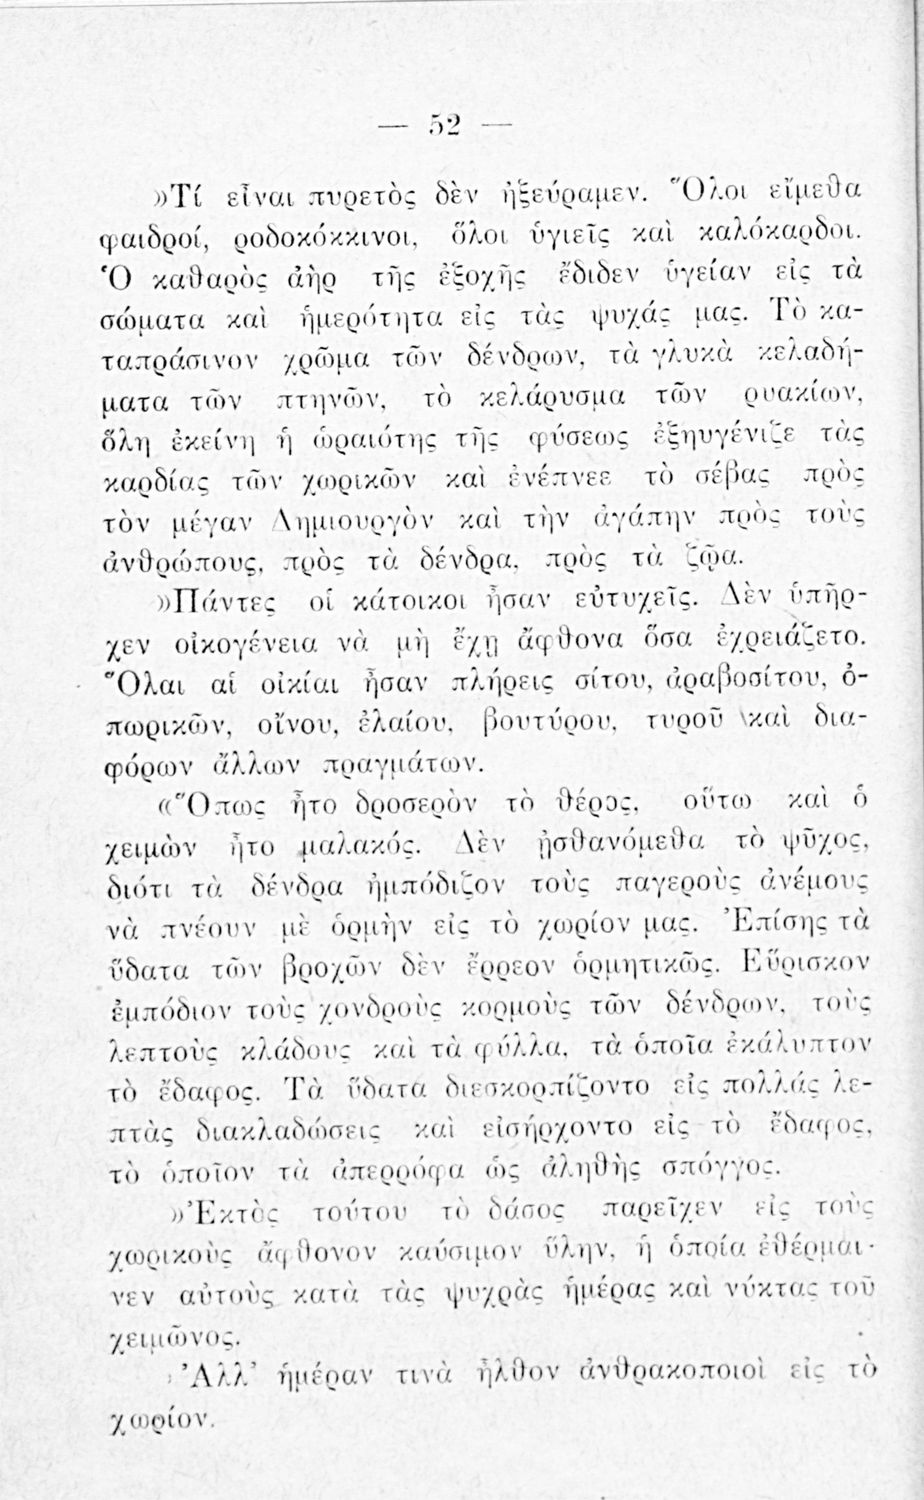 — 52 —
»Τί εἶναι πυρετὸς δὲν ἠξεύραμεν. Ὅλοι εἴμεθα
φαιδροί, ροδοκόκκινοι, ὅλοι ὑγιεῖς καὶ καλόκαρδοι.
Ὁ καθαρὸς ἀὴρ τῆς ἐξοχῆς ἔδιδεν ὑγείαν εἰς τὰ
σώματα καὶ ἡμερότητα εἰς τὰς ψυχάς μας. Τὸ κα-
ταπράσινον χρῶμα τῶν δένδρων, τὰ γλυκὰ κελαδή-
ματα τῶν πτηνῶν, τὸ κελάρυσμα τῶν ρυακίων,
ὅλη ἐκείνη ἡ ὡραιότης τῆς φύσεως ἐξηυγένιζε τὰς
καρδίας τῶν χωρικῶν καὶ ἐνέπνεε τὸ σέβας πρὸς
τὸν μέγαν Δημιουργὸν καὶ τὴν ἀγάπην πρὸς τοὺς
ἀνθρώπους, πρὸς τὰ δένδρα, πρὸς τὰ ζῷα.
»Πάντες οἱ κάτοικοι ἦσαν εὐτυχεῖς. Δὲν ὑπῆρ-
χεν οἰκογένεια νὰ μὴ ἔχῃ ἄφθονα ὅσα ἐχρειάζετο.
Ὅλαι αἱ οἰκίαι ἦσαν πλήρεις σίτου, ἀραβοσίτου, ὀ-
πωρικῶν, οἴνου, ἐλαίου, βουτύρου, τυροῦ καὶ δια-
φόρων ἄλλων πραγμάτων.
«Ὅπως ἦτο δροσερὸν τὸ θέρος, οὕτω καὶ ὁ
χειμὼν ἦτο μαλακός. Δὲν ᾐσθανόμεθα τὸ ψῦχος,
διότι τὰ δένδρα ἠμπόδιζον τοὺς παγεροὺς ἀνέμους
νὰ πνέουν μὲ ὁρμὴν εἰς τὸ χωρίον μας. Ἐπίσης τὰ
ὕδατα τῶν βροχῶν δὲν ἔρρεον ὁρμητικῶς. Εὕρισκον
ἐμπόδιον τοὺς χονδροὺς κορμοὺς τῶν δένδρων, τοὺς
λεπτοὺς κλάδους καὶ τὰ φύλλα, τὰ ὁποῖα ἐκάλυπτον
τὸ ἔδαφος. Τὰ ὕδατα διεσκορπίζοντο εἰς πολλάς λε-
πτὰς διακλαδώσεις καὶ εἰσήρχοντο εἰς τὸ ἔδαφος,
τὸ ὁποῖον τὰ ἀπερρόφα ὡς ἀληθὴς σπόγγος.
»Ἐκτὸς τούτου τὸ δάσος παρεῖχεν εἰς τοὺς
χωρικοὺς ἄφθονον καύσιμον ὕλην, ἡ ὁποία ἐθέρμαι-
νεν αὐτοὺς κατὰ τὰς ψυχρὰς ἡμέρας καὶ νύκτας τοῦ
χειμῶνος.
Ἀλλ' ἡμέραν τινὰ ἦλθον ἀνθρακοποιοὶ εἰς τὸ
χωρίον.